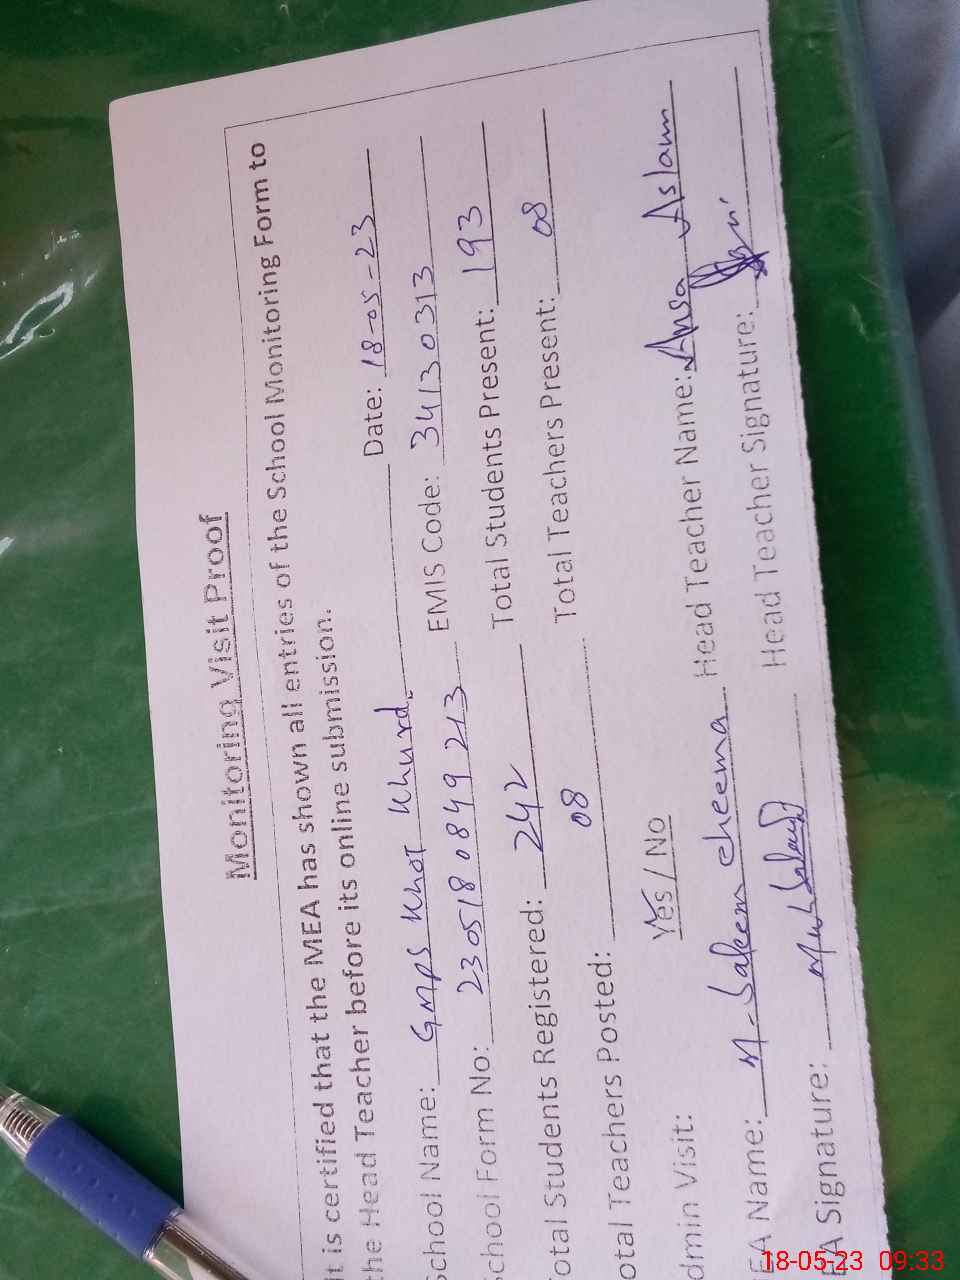 Monitoring Visit Proof
It is certified that the MEA has shown all entries of the School Monitoring Form to
the Head Teacher before its online submission.
School Name: GMPS Khot Khurd. Date: 18-05-23
School Form No: 230518084921 3 EMIS Code: 34130313
Total Students Registered: 242 Total Students Present: 193
otal Teachers Posted: 08 Total Teachers Present: 08
dmin Visit: Yes / No
EA Name: M. Saleem cheema Head Teacher Name: Ansa Aslam
EA Signature: Head Teacher Signature:
18-05-23 09:33